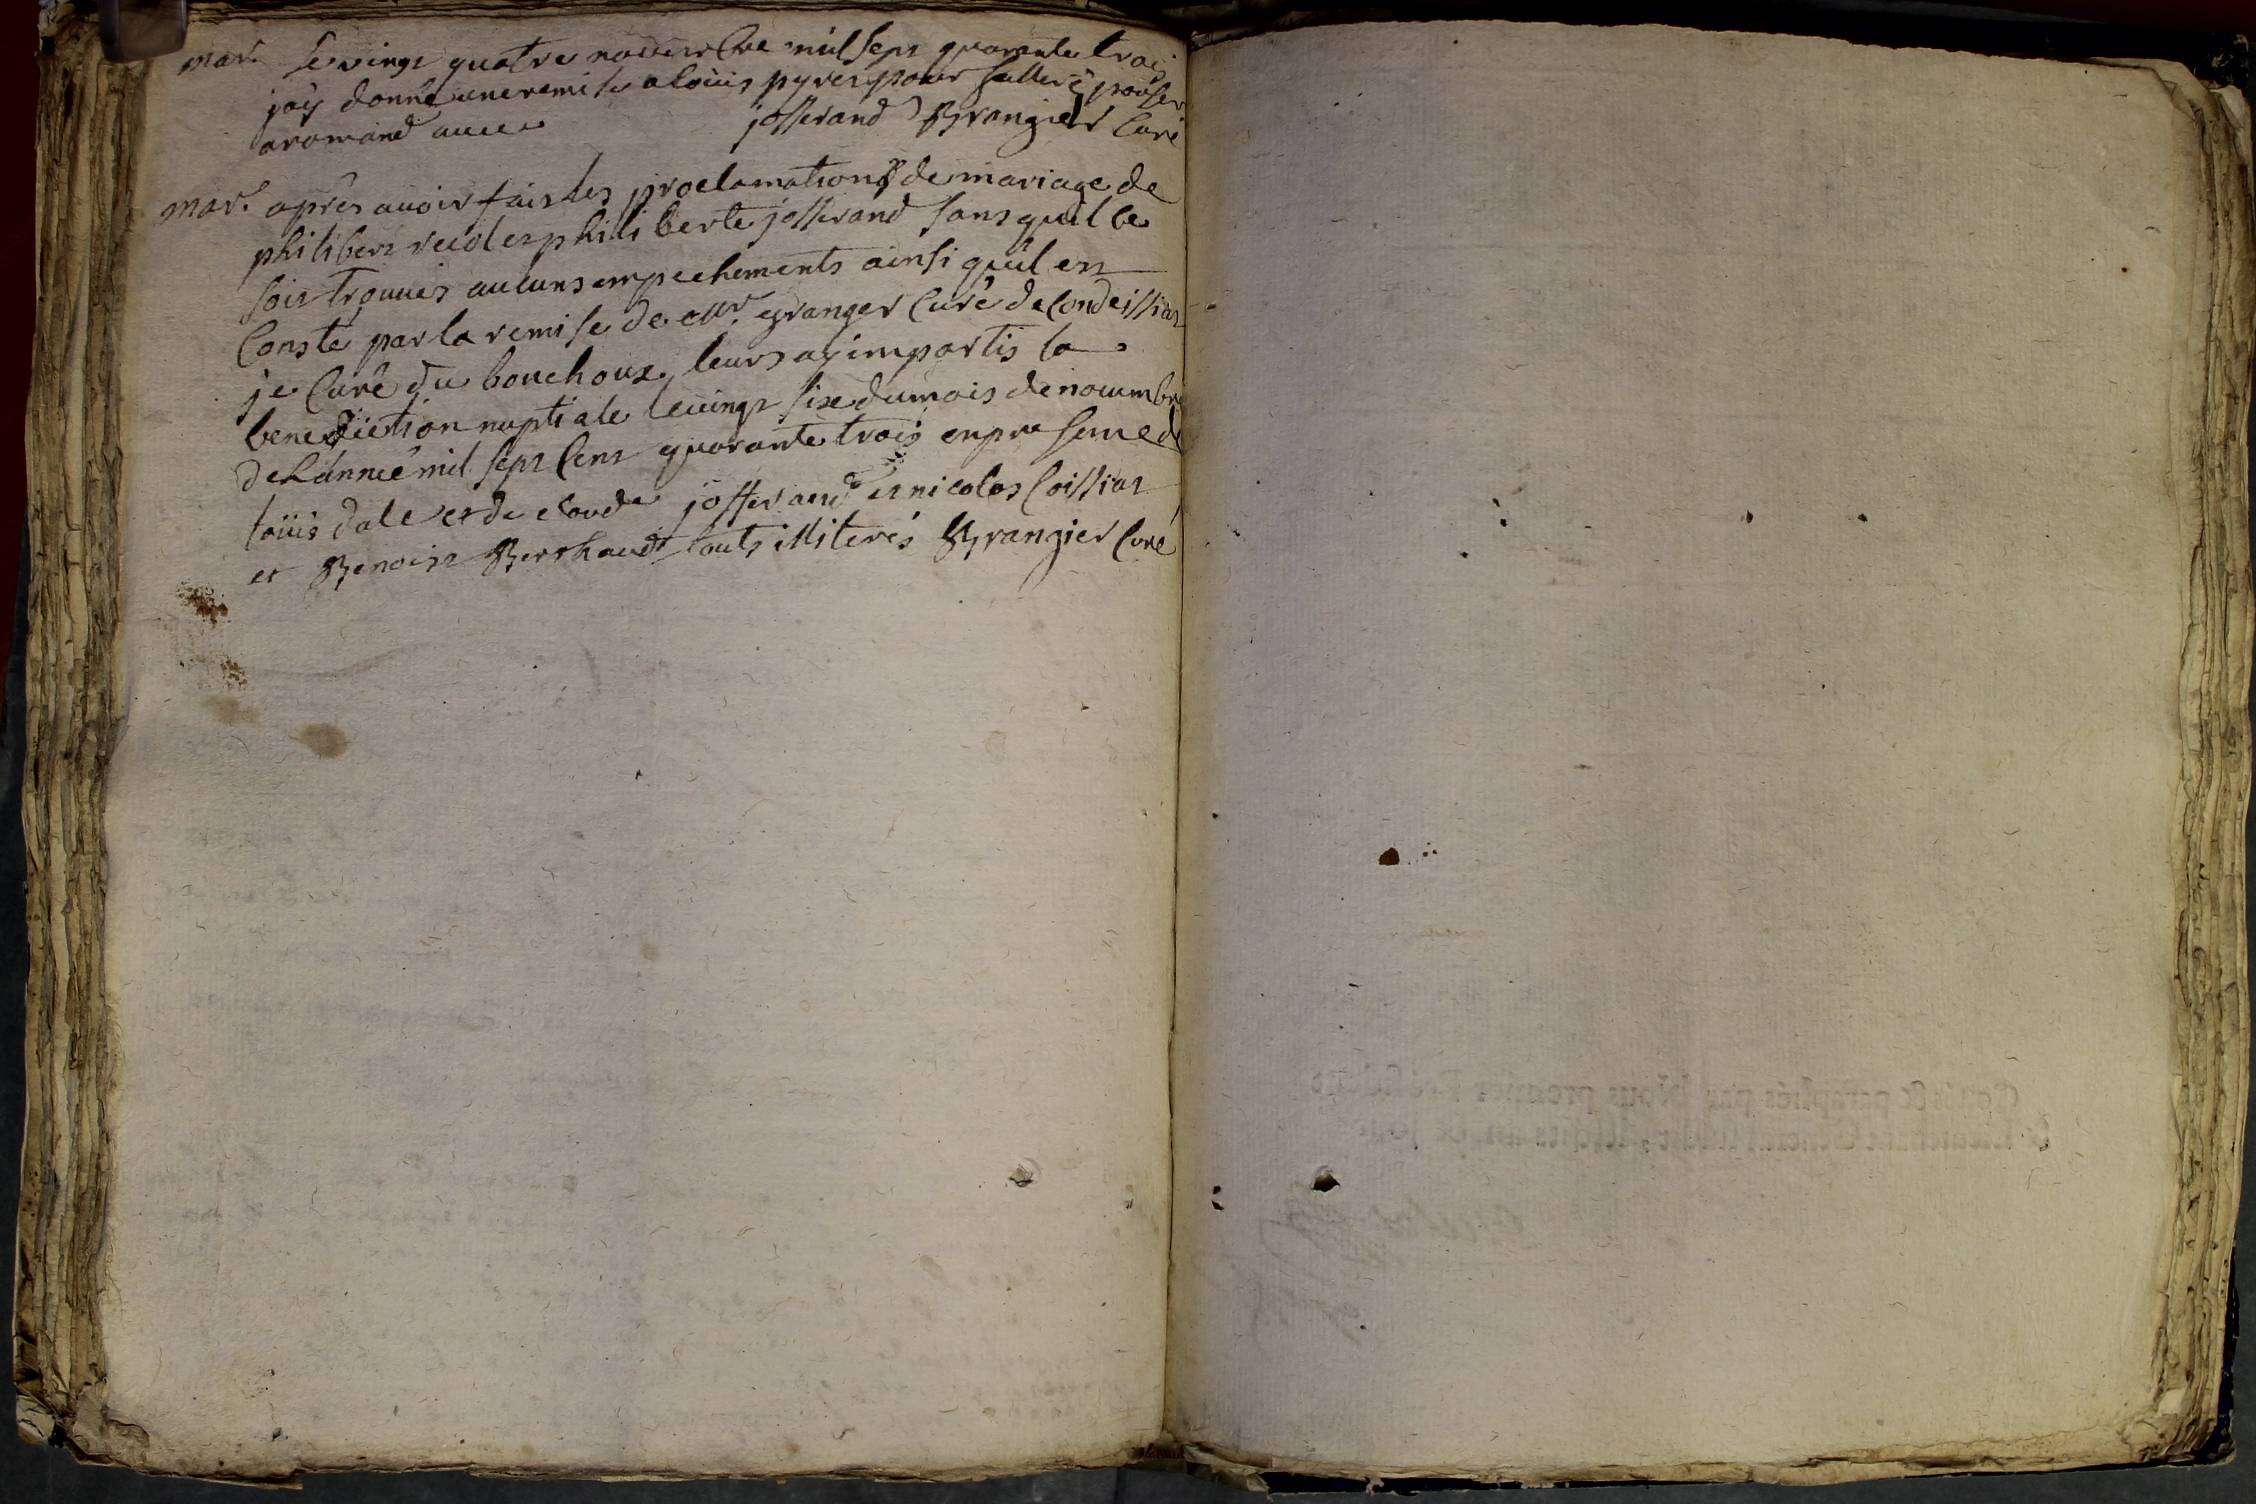 mar. le vingt quatre novembre mil sept quarante trois
jay donné une remise a loüis pyret pour saller épouser
a romand avec josserand Grangier Curé
mar. après avoir fait les proclamations de mariage de
philibert veud et philiberte josserand sans quil ce
soit trouvés aucuns empechements ainsi quil en
Conste par la remise de mr. granger Curé de Condeissiat
je Curé du bouchoux leurs ay impartis la
benediction nuptiale le vingt sixe du mois de novembre
de Lánnée mil sept Cent quarante trois en presence de
loüis dale et de claude josserand et nicolas Coissiat
et Benoist Berthaud touts illiterés Grangier Curé
par Nous premier